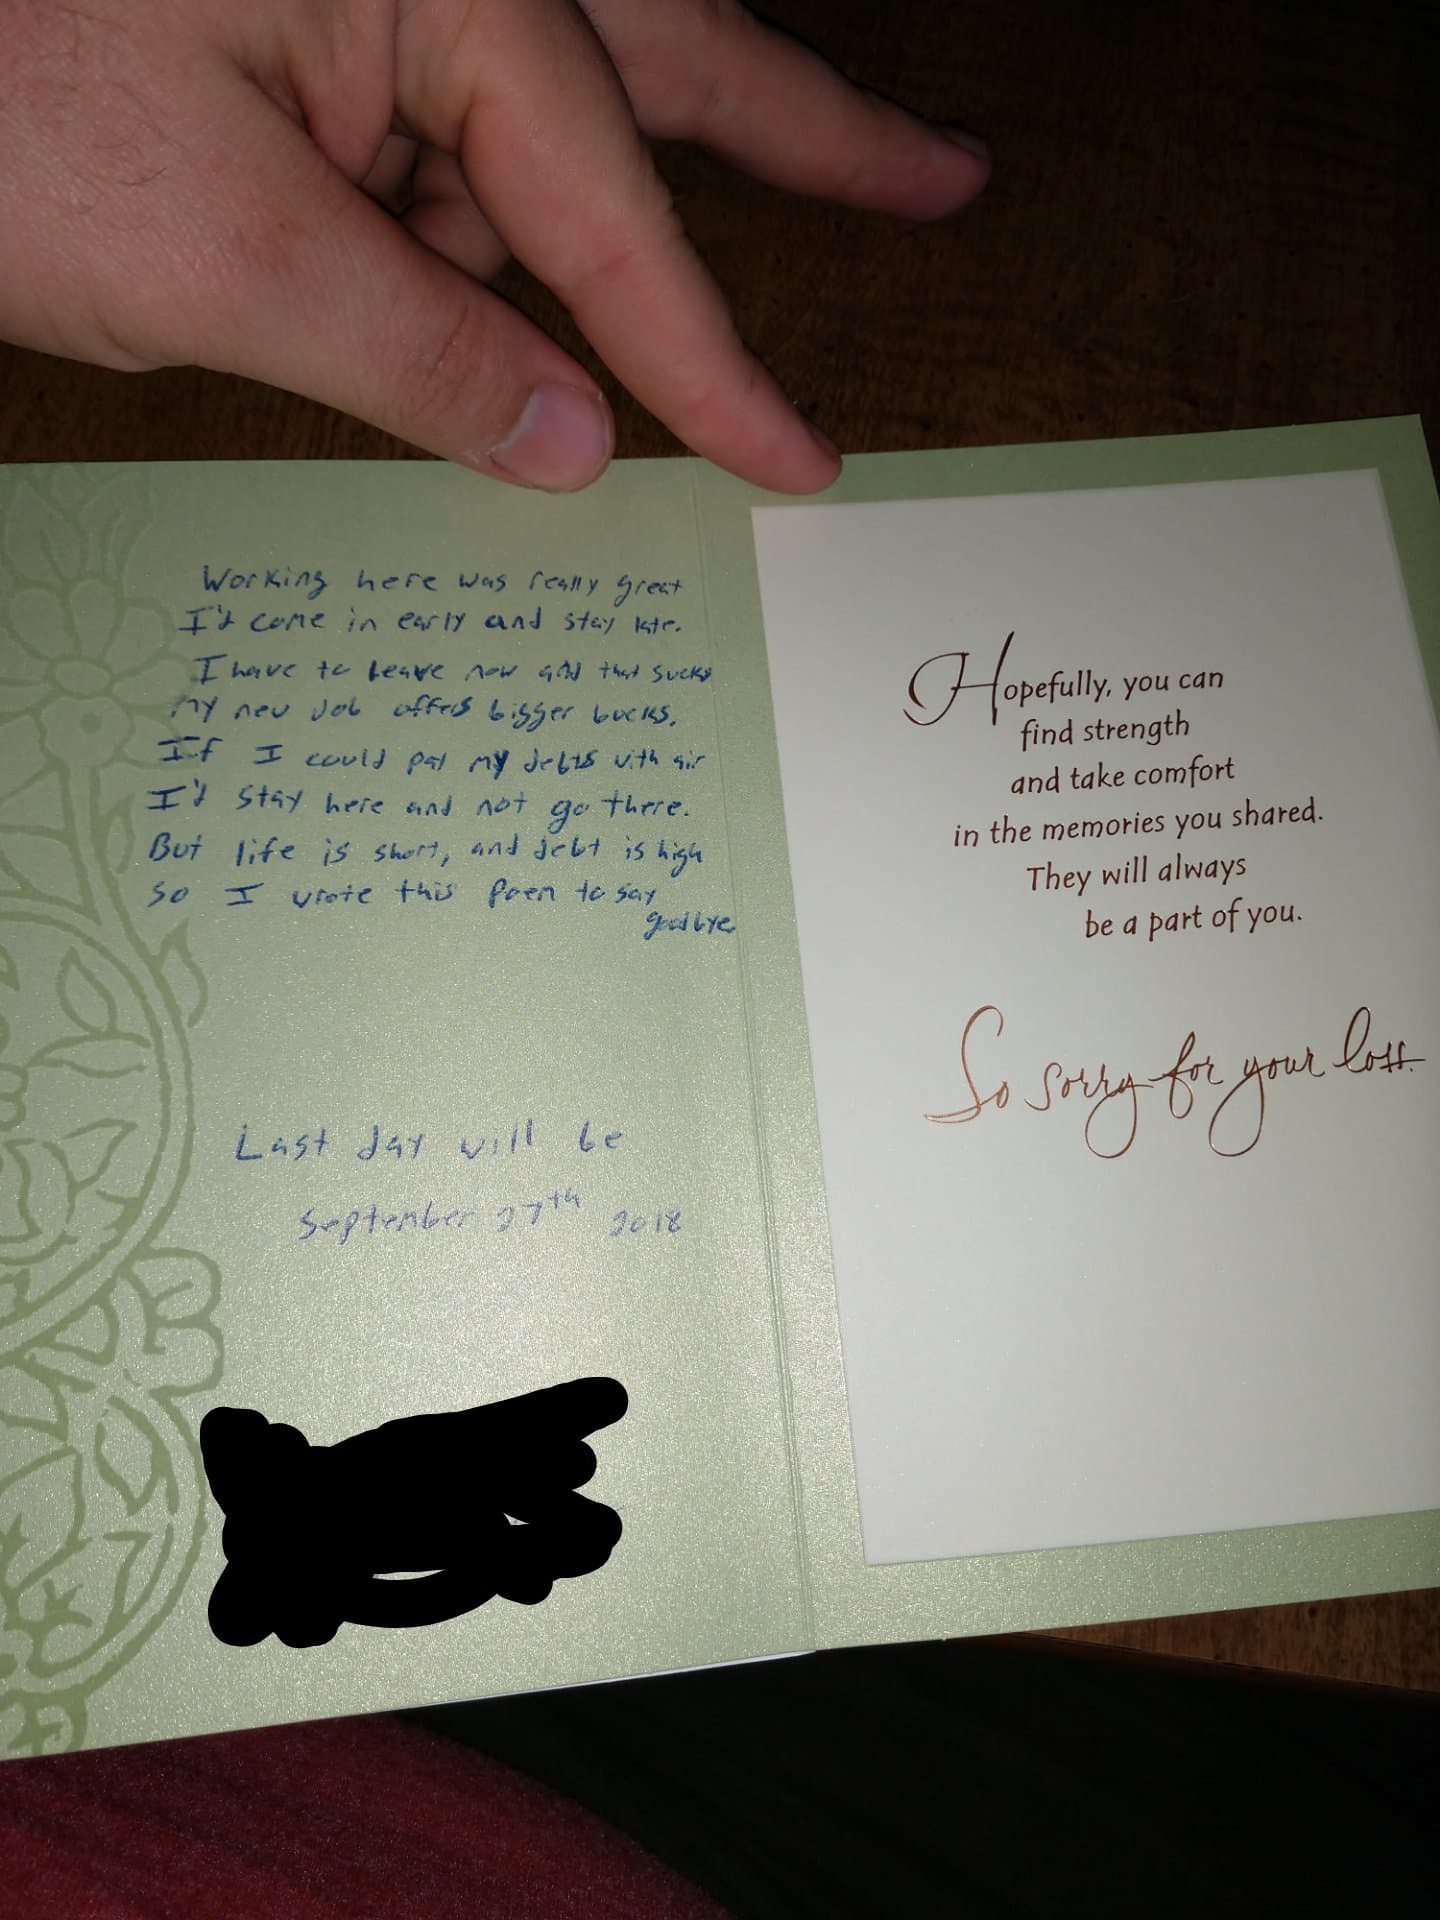 Working here was really great
I'd come in early and stay late.
I have to leave now and that sucks
My new Job offers bigger bucks.
If I could pay my debts with air
I'd stay here and not go there.
But life is short, and debt is high
So I wrote this Poem to say
goodbye
Last day will be
September 27th 2018
Hopefully, you can
find strength
and take comfort
in the memories you shared.
They will always
be a part of you.
So sorry for your loss.